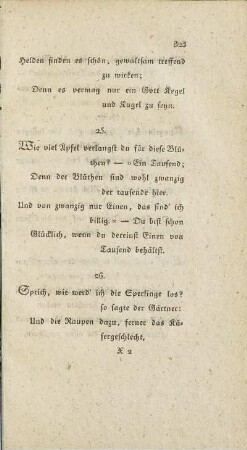 323
Helden finden es schön, gewaltsam treffend
zu wirken;
Denn es vermag nur ein Gott Kegel
und Kugel zu seyn.
25.
Wie viel Äpfel verlangst du für diese Blü-
then? — »Ein Tausend;
Denn der Blüthen sind wohl zwanzig
der tausende hier.
Und von zwanzig nur Einen, das find' ich
billig.« — Du bist schon
Glücklich, wenn du dereinst Einen von
Tausend behältst.
26.
Sprich, wie werd' ich die Sperlinge los?
so sagte der Gärtner:
Und die Raupen dazu, ferner das Kä-
fergeschlecht,
X 2